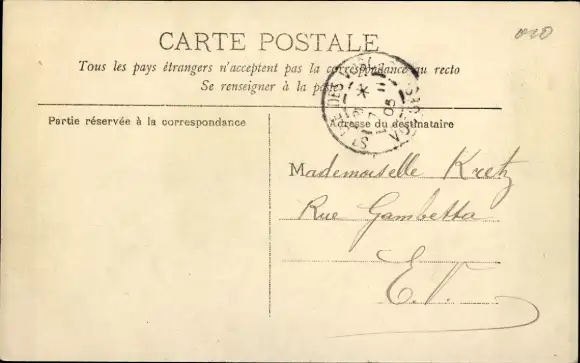 CARTE POSTALE
Tous les pays étrangers n'acceptent pas la correspondance au recto
Se renseigner à la poste
Partie réservée à la correspondance
Adresse du destinataire
Mademoiselle Kretz
Rue Gambetta
E.V.
VOSGES
05